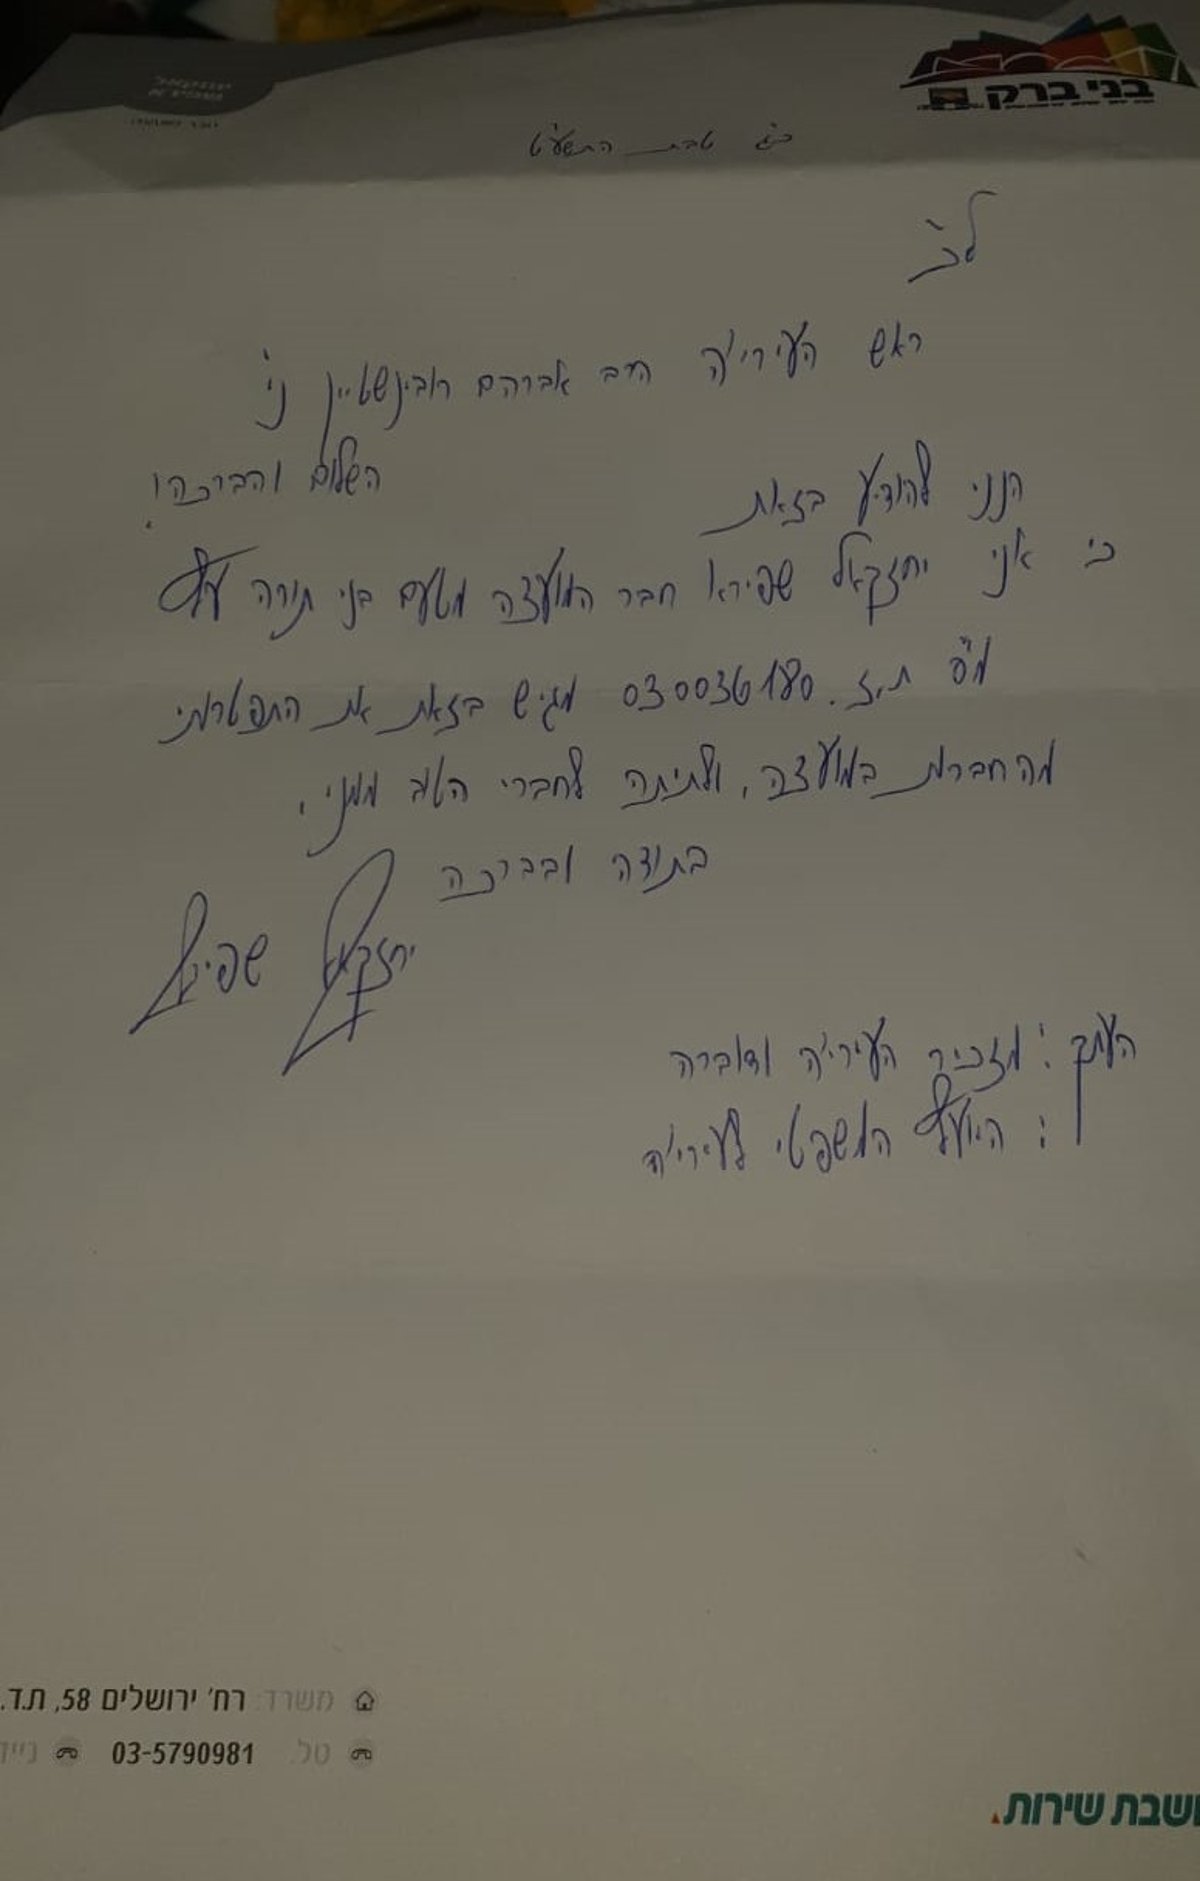 בני ברק
יחזקאל
שפירא
כ"ג טבת התשע"ט
לכ'
ראש העירי'ה הרב אברהם רובינשטיין ני'
השלום והברכה!
הנני להודיע בזאת
כי אני יחזקאל שפירא חבר המועצה מטעם בני תורה עץ
מס' ת.ז. 030036180 מגיש בזאת את התפטרותי
מהחברות במועצה, ולתיתה לחברי הטוב ממני.
בתודה ובברכה
יחזקאל שפירא
העתק: מזכיר העירי'ה ודוברה
: היועץ המשפטי לעירי'ה
משרד: רח' ירושלים 58, ת.ד.
טל. 03-5790981 נייד
ושבת שירות.